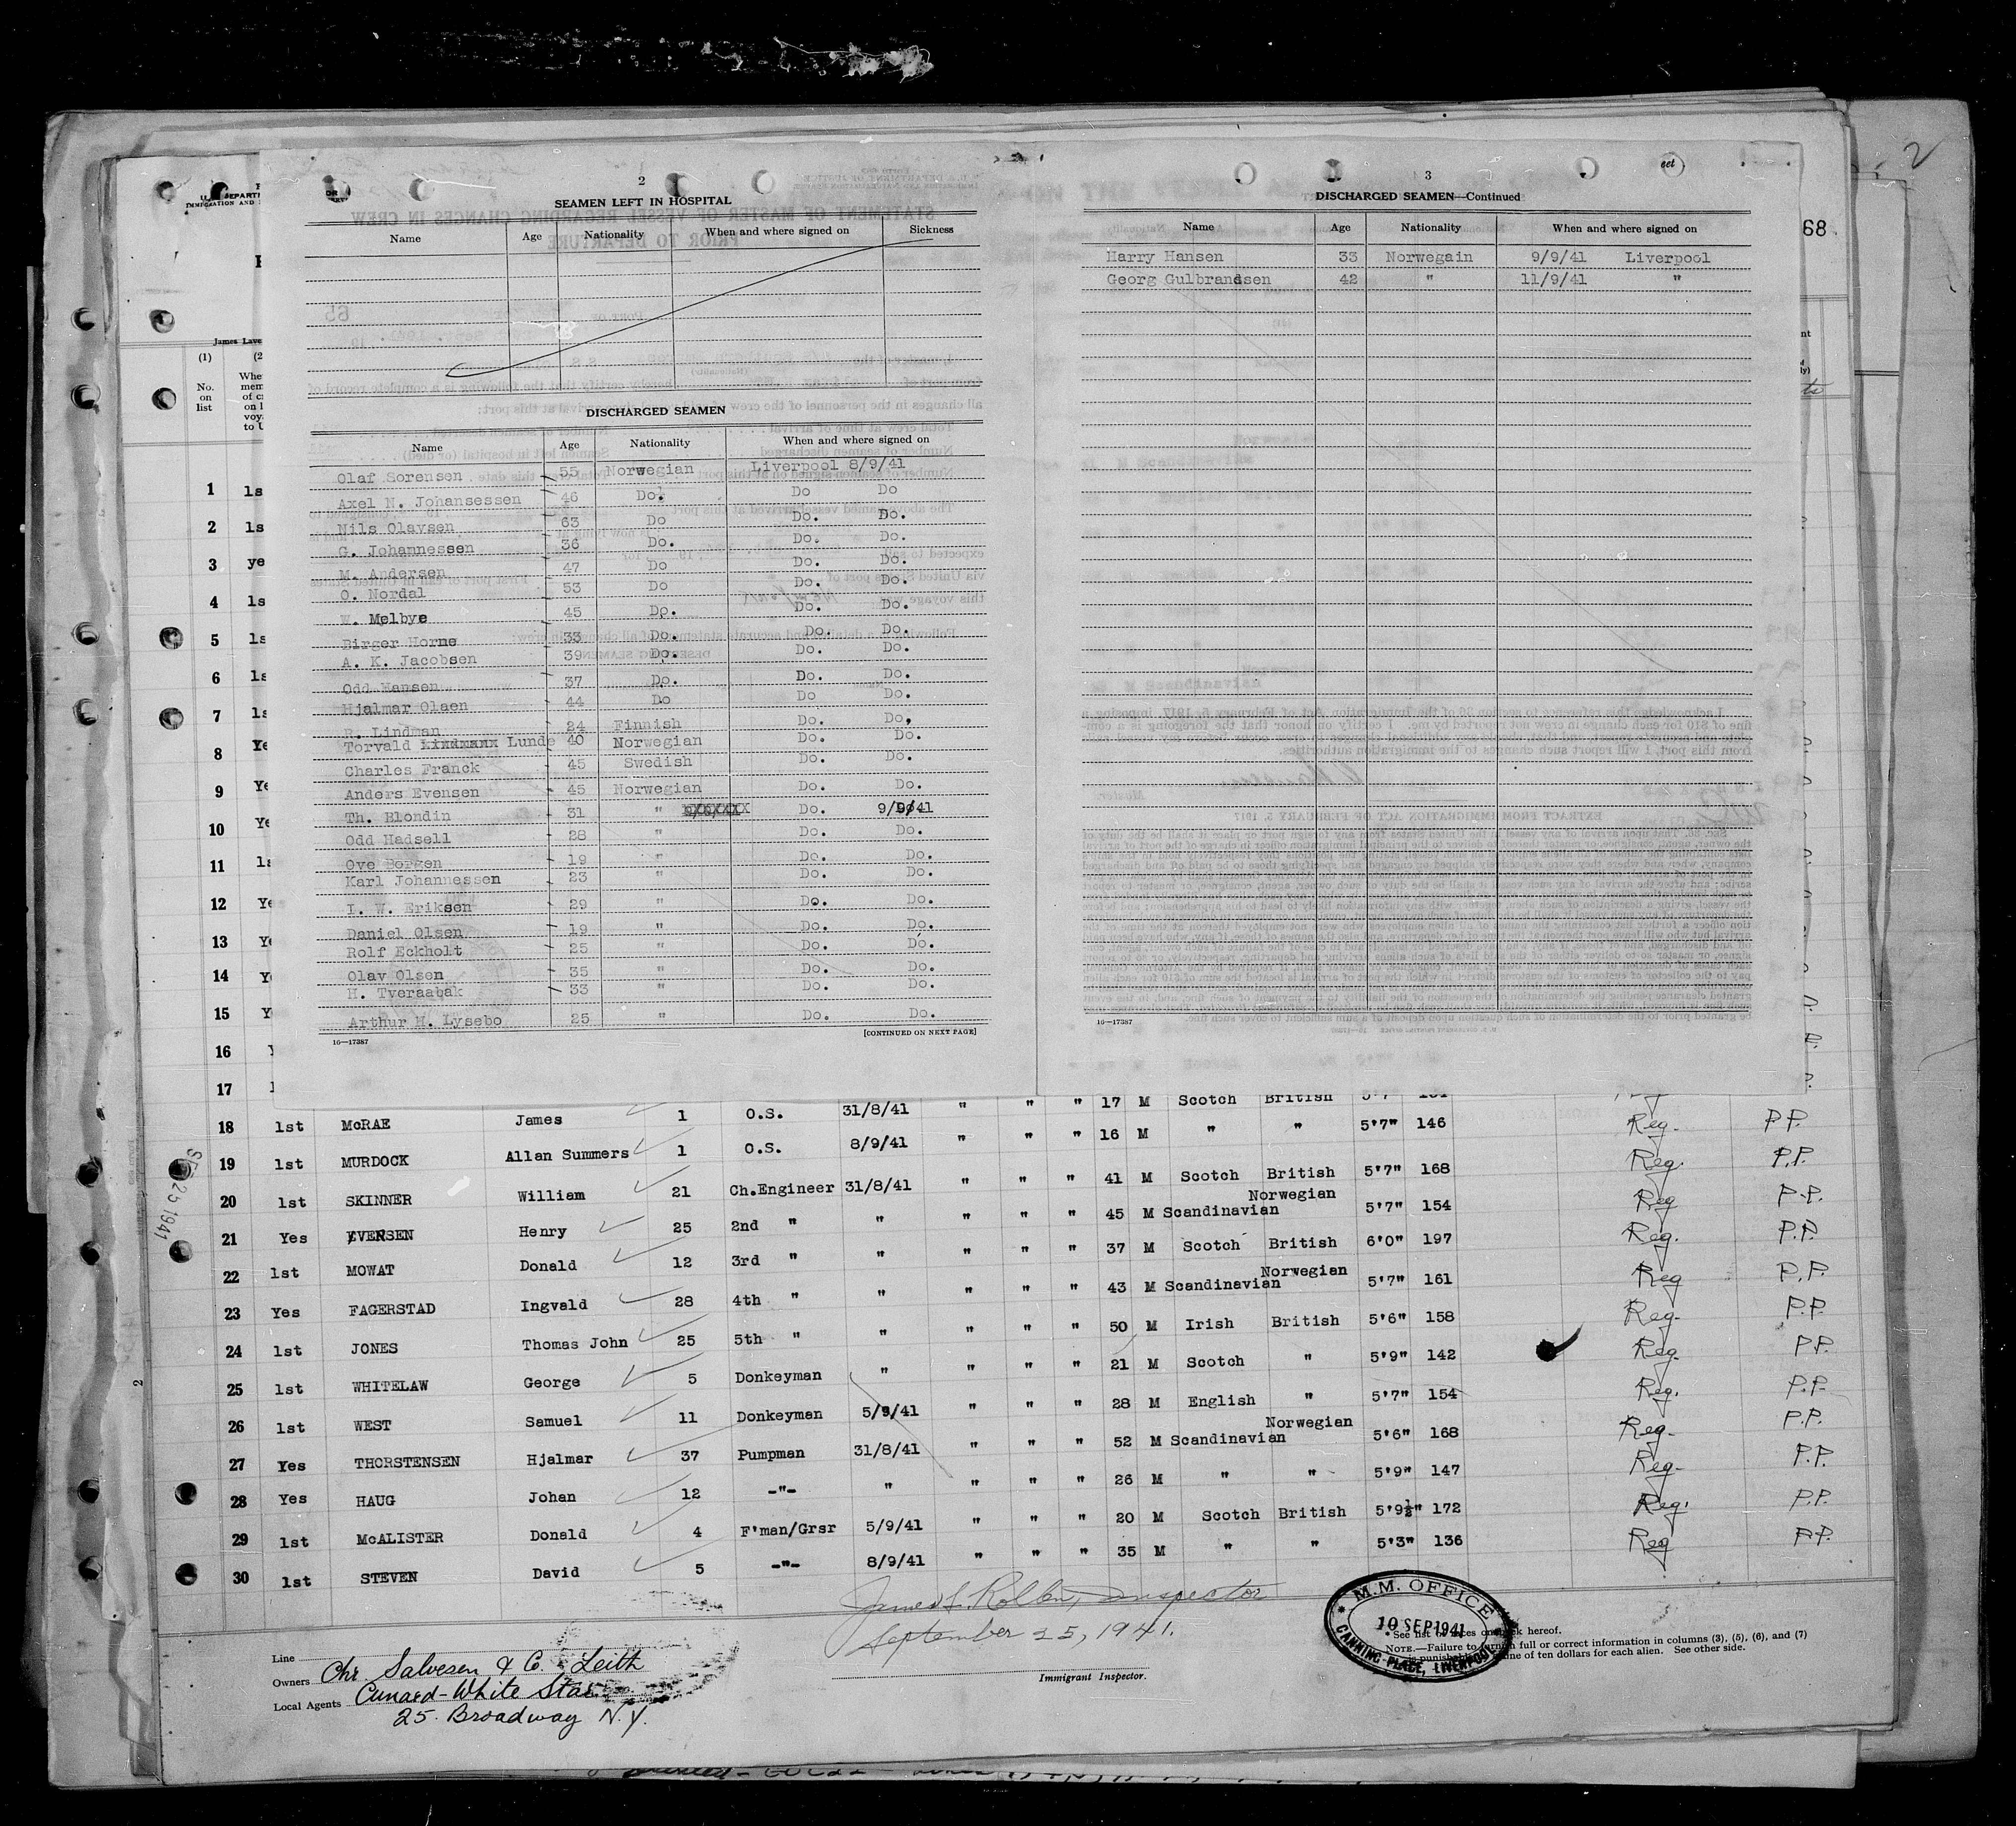 2
SEAMEN LEFT IN HOSPITAL
Name Age Nationality When and where signed on Sickness
DISCHARGED SEAMEN
Name Age Nationality When and where signed on
Olaf Sorensen 55 Norwegian Liverpool 8/9/41
Axel N. Johansessen 46 Do. Do Do
Nils Olavsen 63 Do Do. Do.
G. Johannessen 36 Do. Do. Do.
M. Andersen 47 Do Do. Do.
O. Nordal 53 Do Do. Do.
W. Melbye 45 Do. Do. Do.
Birger Horne 33 Do. Do. Do.
A. K. Jacobsen 39 Do. Do. Do.
Odd Hansen 37 Do. Do. Do.
Hjalmar Olaen 44 Do Do Do.
R. Lindman 24 Finnish Do. Do.
Torvald Lunde 40 Norwegian Do. Do.
Charles Franck 45 Swedish Do. Do.
Anders Evensen 45 Norwegian Do. Do.
Th. Blondin 31 " Do. 9/9/41
Odd Hadsell 28 " Do. Do.
Ove Borgen 19 " Do. Do.
Karl Johannessen 23 " Do. Do.
I. W. Eriksen 29 " Do. Do.
Daniel Olsen 19 " Do. Do.
Rolf Eckholt 25 " Do. Do.
Olav Olsen 35 " Do. Do.
H. Tveraabak 33 " Do. Do.
Arthur M. Lysebo 25 " Do. Do.
16—17387 [CONTINUED ON NEXT PAGE]
3
DISCHARGED SEAMEN—Continued
Name Age Nationality When and where signed on
Harry Hansen 33 Norwegain 9/9/41 Liverpool
Georg Gulbrandsen 42 " 11/9/41 "
16—17387
68
2
James Lave
(1) (2
No. on list
1 ls
2 ls
3 ye
4 ls
5 ls
6 ls
7 ls
8 Ye
9 Ye
10 Ye
11 ls
12 Ye
13 Ye
14 Ye
15 Y
16
17
18 1st McRAE James 1 O.S. 31/8/41 " " " 17 M Scotch British 5'7"
19 1st MURDOCK Allan Summers 1 O.S. 8/9/41 " " " 16 M " " 5'7" 146 Reg. P.P.
20 1st SKINNER William 21 Ch.Engineer 31/8/41 " " " 41 M Scotch British 5'7" 168 Reg. P.P.
21 Yes EVENSEN Henry 25 2nd " " " " " 45 M Scandinavian Norwegian 5'7" 154 Reg P.P.
22 1st MOWAT Donald 12 3rd " " " " " 37 M Scotch British 6'0" 197 Reg. P.P.
23 Yes FAGERSTAD Ingvald 28 4th " " " " " 43 M Scandinavian Norwegian 5'7" 161 Reg P.P.
24 1st JONES Thomas John 25 5th " " " " " 50 M Irish British 5'6" 158 Reg. P.P.
25 1st WHITELAW George 5 Donkeyman " " " " 21 M Scotch " 5'9" 142 Reg. P.P.
26 1st WEST Samuel 11 Donkeyman 5/9/41 " " " 28 M English " 5'7" 154 Reg. P.P.
27 Yes THORSTENSEN Hjalmar 37 Pumpman 31/8/41 " " " 52 M Scandinavian Norwegian 5'6" 168 Reg. P.P.
28 Yes HAUG Johan 12 -"- " " " " 26 M " " 5'9" 147 Reg. P.P.
29 1st McALISTER Donald 4 F'man/Grsr 5/9/41 " " " 20 M Scotch British 5'9½" 172 Reg. P.P.
30 1st STEVEN David 5 -"- 8/9/41 " " " 35 M " " 5'3" 136 Reg P.P.
2
Inspector
September 25, 1941.
Immigrant Inspector.
Line
Owners Chr. Salvesen & Co. Leith
Local Agents Cunard-White Star
25. Broadway N.Y.
M.M. OFFICE
10 SEP 1941
CANNING PLACE, LIVERPOOL
See list of races on back hereof.
NOTE.—Failure to furnish full or correct information in columns (3), (5), (6), and (7)
is punishable by fine of ten dollars for each alien. See other side.